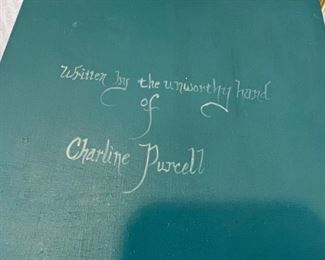 Written by the unworthy hand
of
Charline Purcell